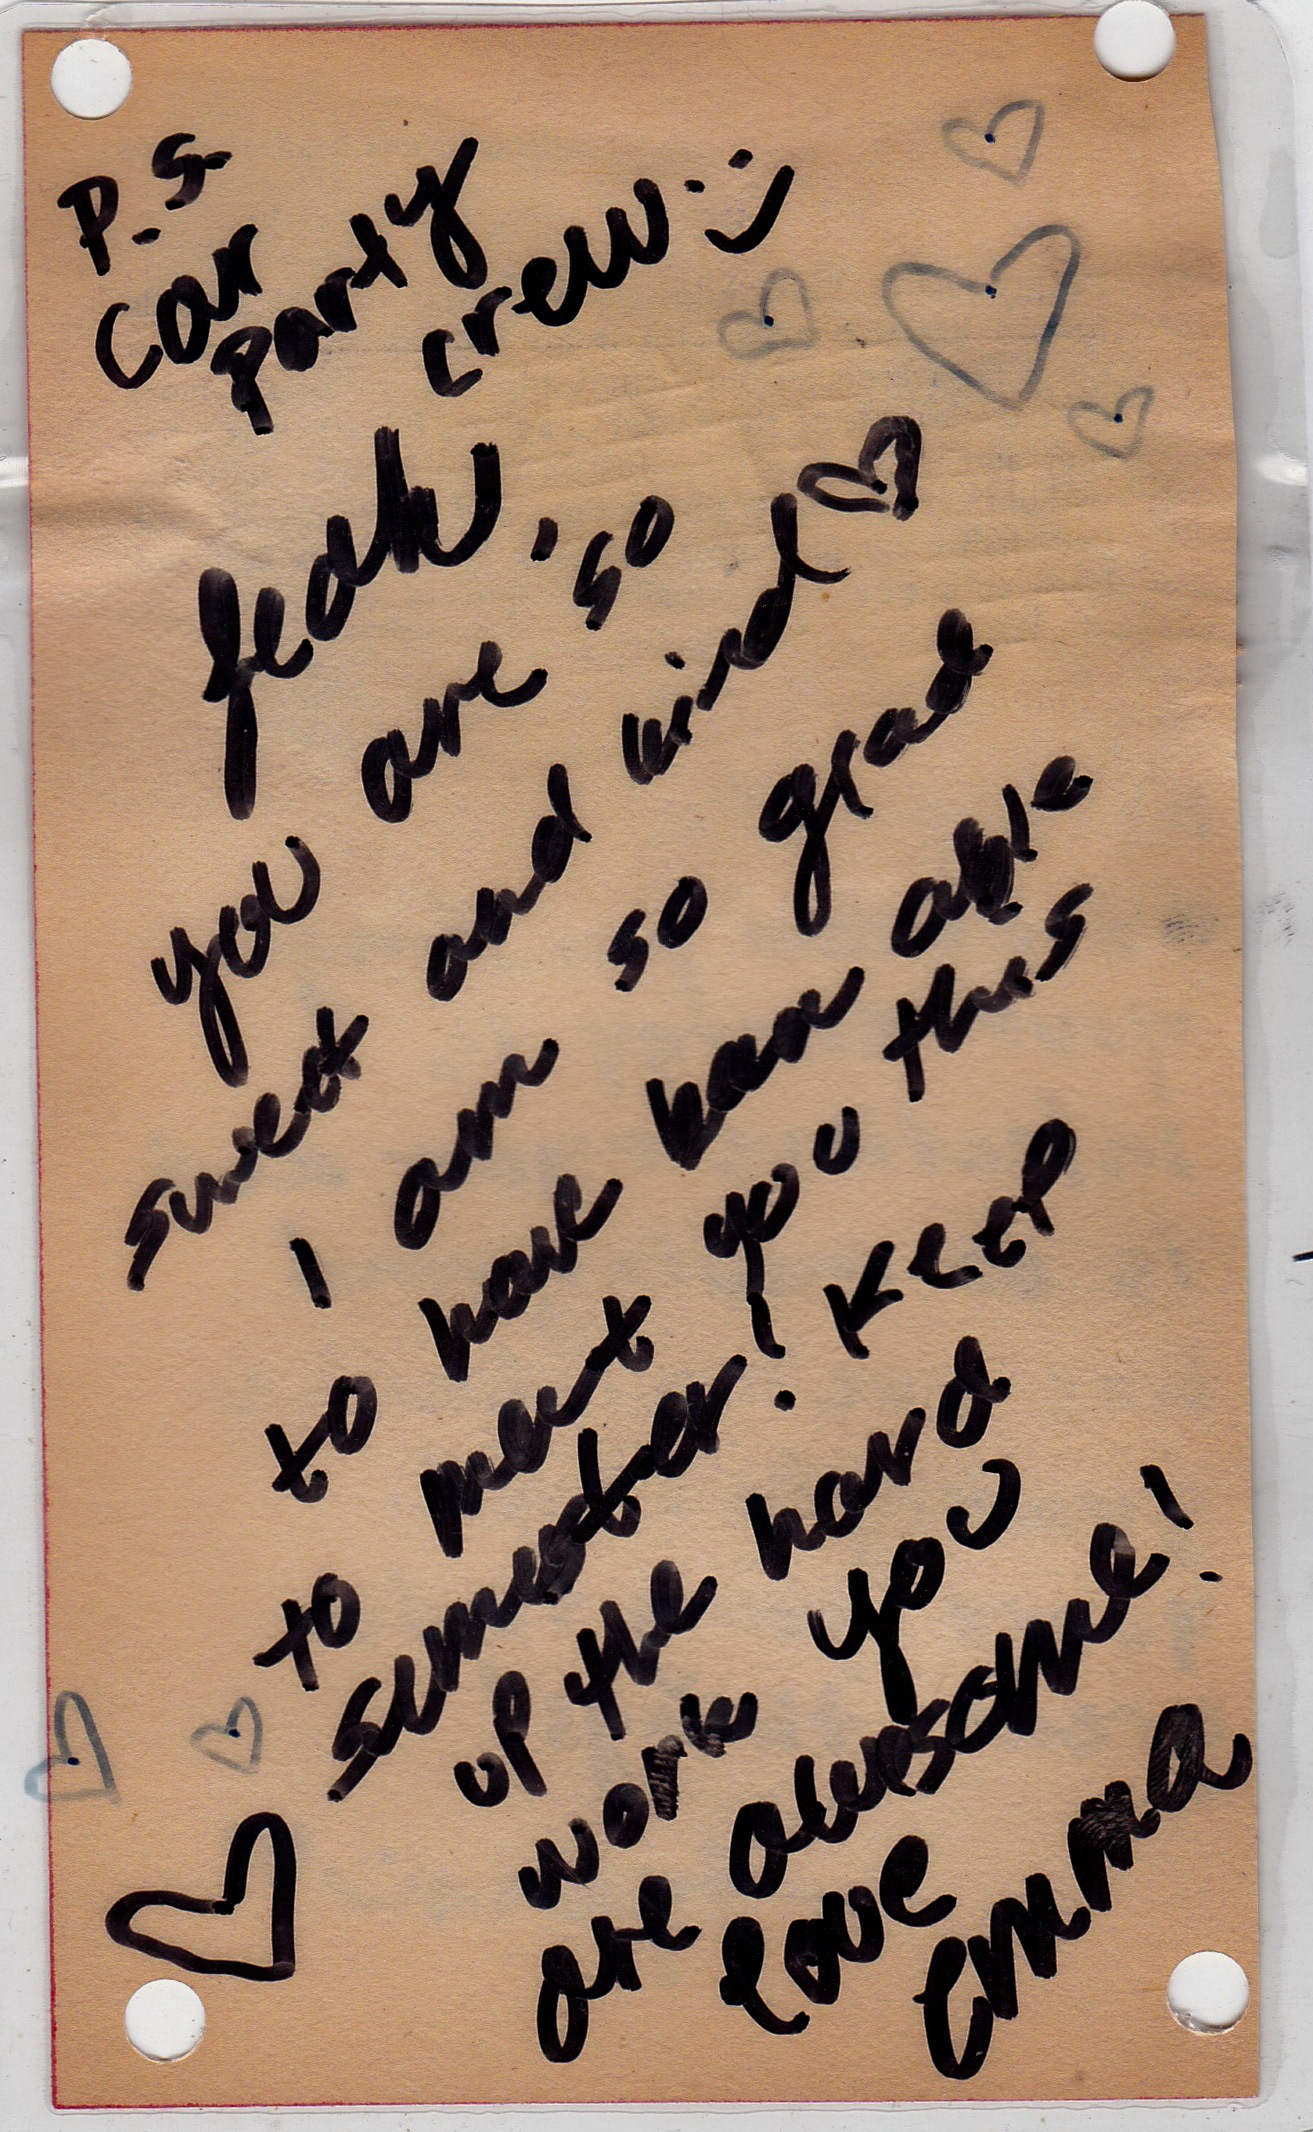 P.S.
car
party
crew :)
you are so
sweet and kind ♡
I am so glad
to have been able
to meet you this
semester! KEEP
up the hard
work you
are awesome!
love
Emma